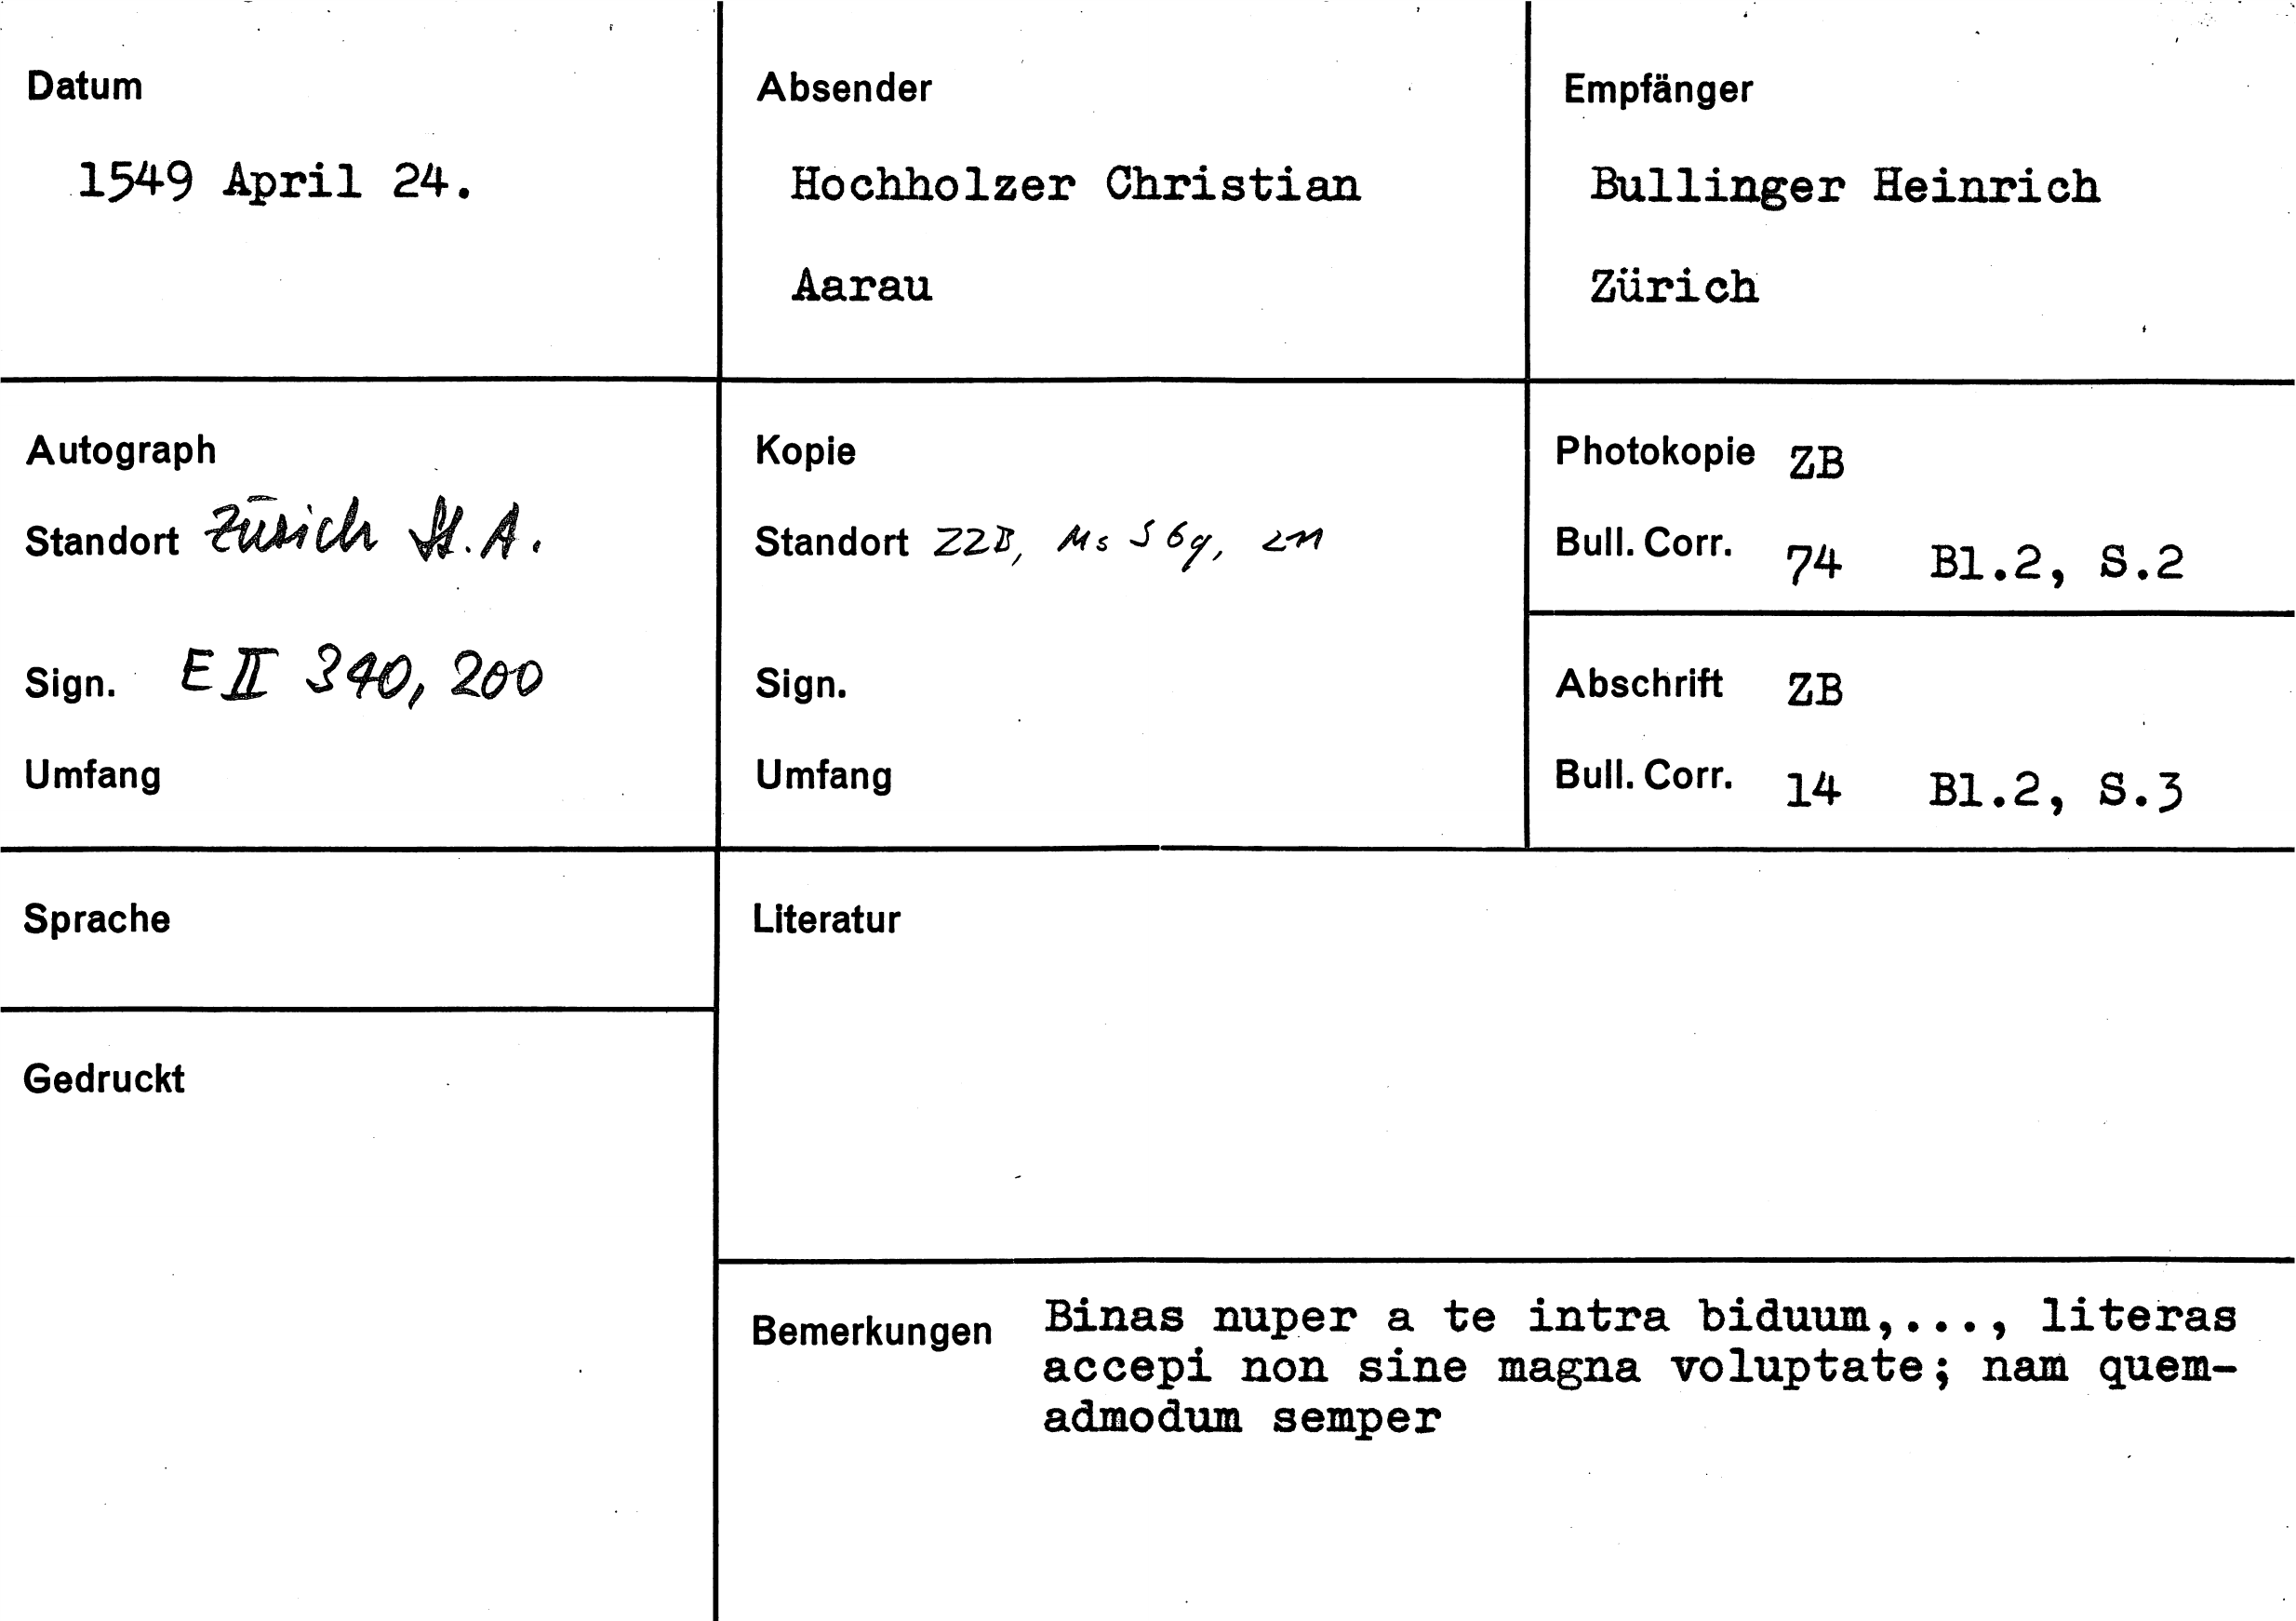 Datum
1549 April 24.
Absender
Hochholzer Christian
Aarau
Empfänger
Bullinger Heinrich
Zürich
Autograph
Standort Zürich St.A.
Sign. E II 340, 200
Umfang
Kopie
Standort ZZB, Ms S 69,
Sign.
Umfang
Photokopie ZB
Bull. Corr. 74 Bl.2, S.2
Abschrift ZB
Bull. Corr. 14 Bl.2, S.3
Sprache
Literatur
Gedruckt
Bemerkungen Binas nuper a te intra biduum,..., literas
accepi non sine magna voluptate; nam quem-
admodum semper